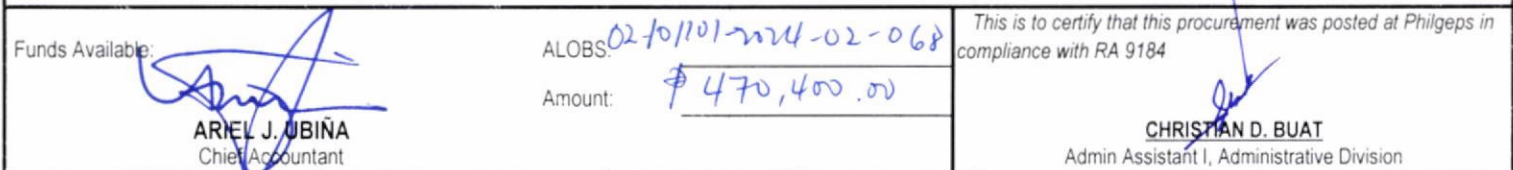 Funds Available:
ARIEL J. UBIÑA
Chief Accountant
ALOBS: 02/0/101-2024-02-068
Amount: ₱ 470,400.00
This is to certify that this procurement was posted at Philgeps in
compliance with RA 9184
CHRISTIAN D. BUAT
Admin Assistant I, Administrative Division